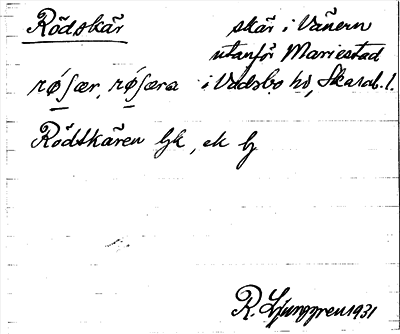 Rödskär
skär i Vänern
utanför Mariestad
røʃær, røʃæra i Vadsbo hd, Skarab. l.
Rödskären Gk, ek
R. Ljunggren 1931